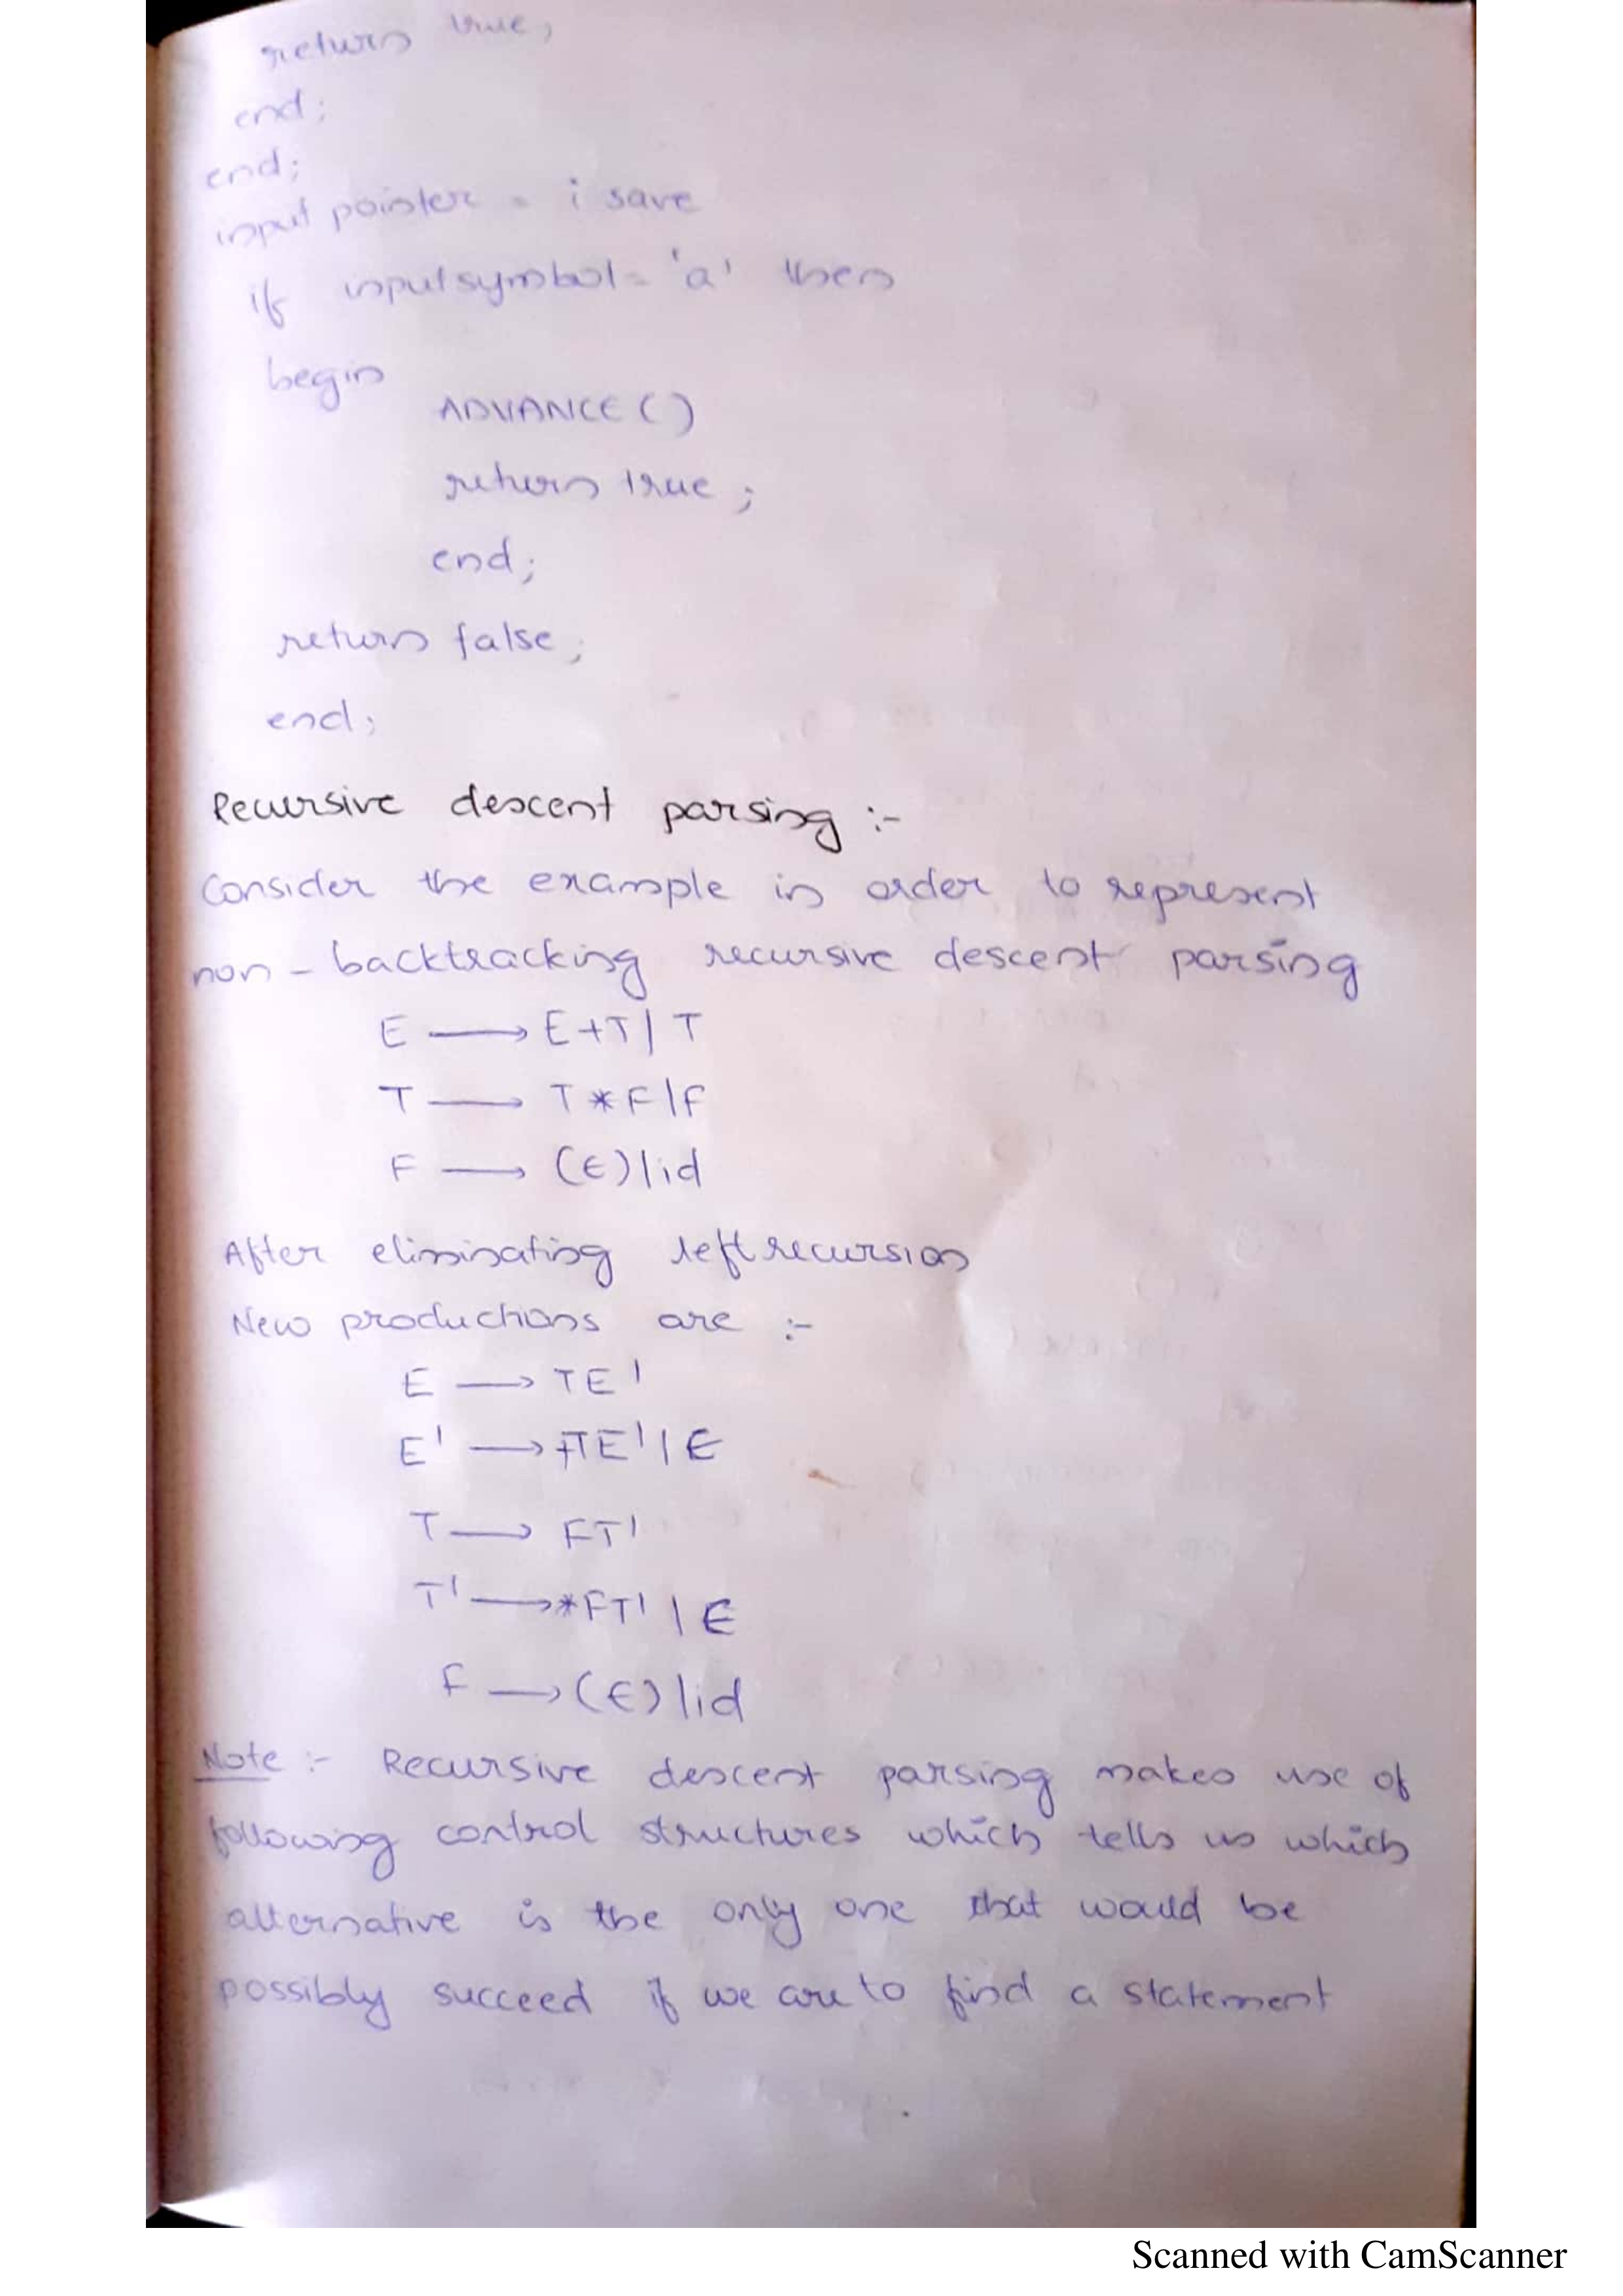 return true;
end;
end;
input pointer = i save
if inputsymbol = 'a' then
begin
ADVANCE ( )
return true ;
end;
return false;
end;
Recursive descent parsing :-
Consider the example in order to represent
non - backtracking recursive descent parsing
E → E+T | T
T → T * F | F
F → (E) | id
After eliminating left recursion
New productions are :-
E → TE'
E' → +TE' | ϵ
T → FT'
T' → *FT' | ϵ
F → (E) | id
Note :- Recursive descent parsing makes use of
following control structures which tells us which
alternative is the only one that would be
possibly succeed if we are to find a statement
Scanned with CamScanner